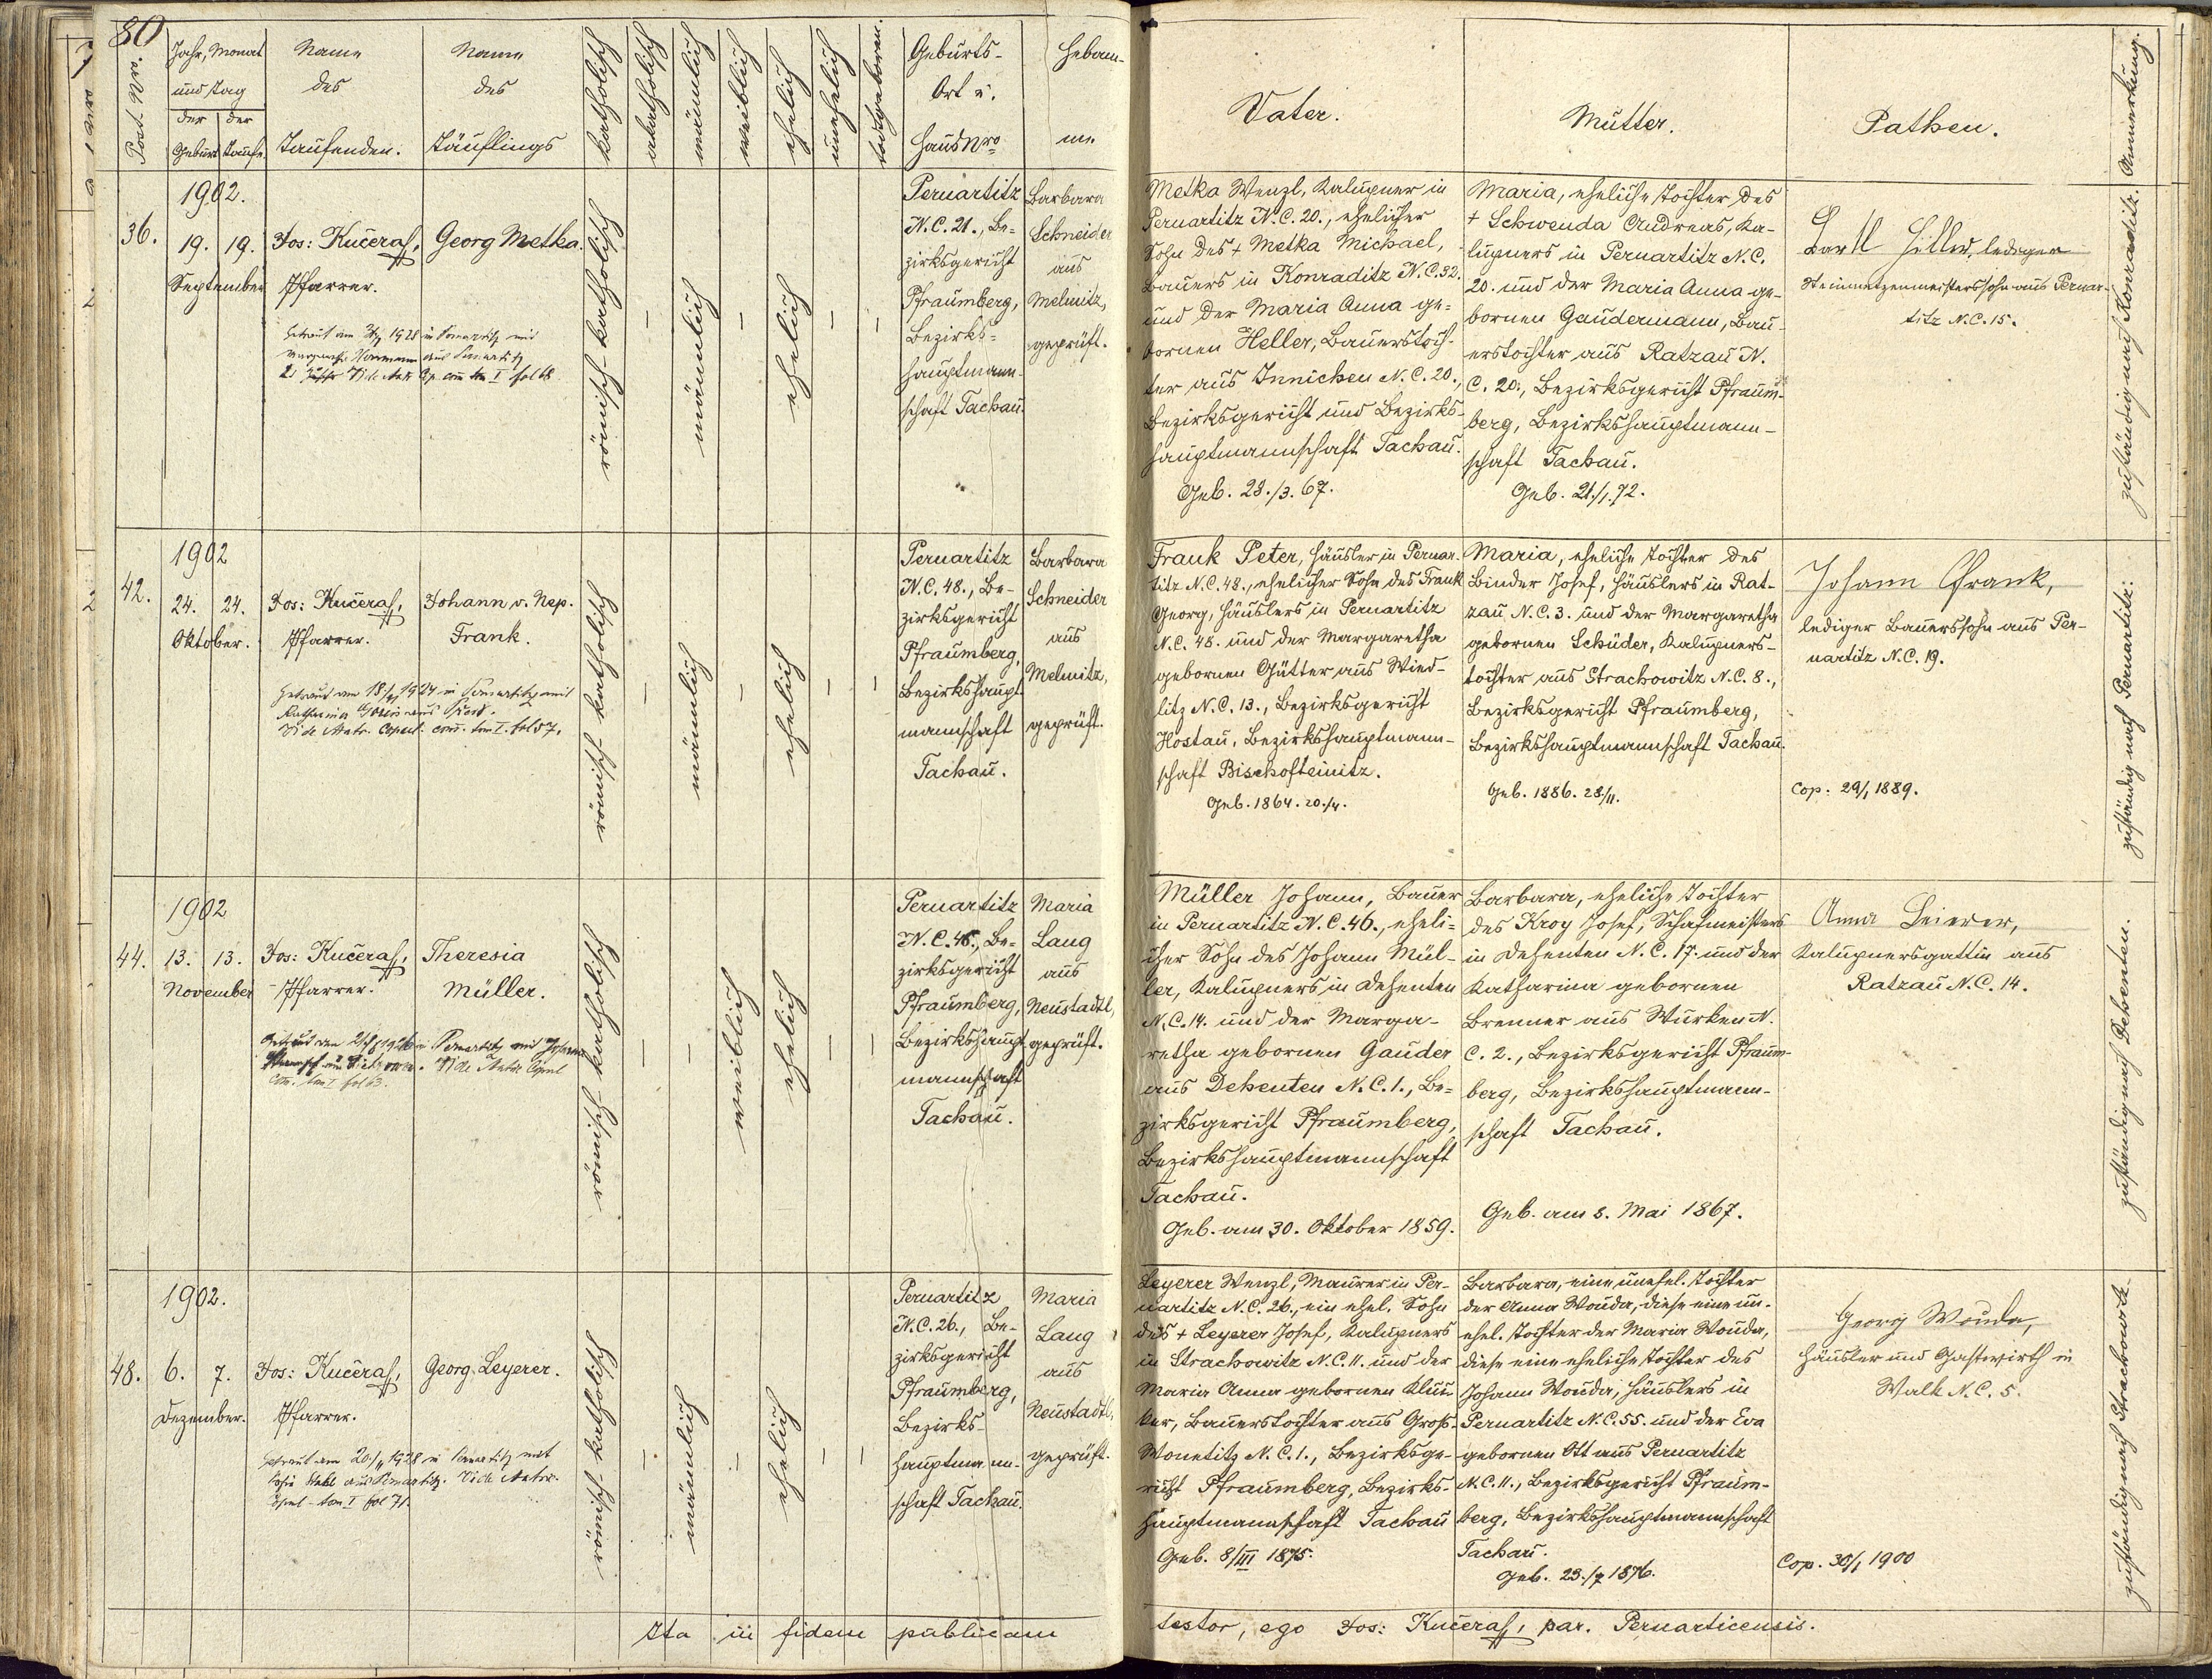 80
Post-Nr.
Jahr, Monat
und Tag
der
Geburt
der
Taufe
Name
des
Taufenden.
Name
des
Täuflings
katholisch
akatholisch
männlich
weiblich
ehelich
unehelich
todtgeboren.
Geburts-
Ort u.
Haus Nro
Hebam-
me
Vater.
Mutter.
Pathen.
Anmerkung.
36.
1902.
19. 19.
September
Jos: Kučera,
Pfarrer.
Georg Metka.
Getraut am 1928 in Pernartitz mit
aus Pernartitz
Vide Matr. Cop. com. tom I fol 68.
römisch-katholisch
–
männlich
–
ehelich
–
–
Pernartitz
N.C. 21., Be-
zirksgericht
Pfraumberg,
Bezirks-
hauptmann-
schaft Tachau.
Barbara
Schneider
aus
Melnitz,
geprüft.
Metka Wenzl, Kalupner in
Pernartitz N.C. 20., ehelicher
Sohn des + Metka Michael,
Bauers in Konraditz N.C. 32.
und der Maria Anna ge-
bornen Heller, Bauerstoch-
ter aus Innichen N.C. 20.,
Bezirksgericht und Bezirks-
hauptmannschaft Tachau.
Geb. 28./3. 67.
Maria, eheliche Tochter des
+ Schwenda Andreas, Ka-
lupners in Pernartitz N.C.
20. und der Maria Anna ge-
bornen Gaudermann, Bau-
erstochter aus Ratzau N.
C. 20., Bezirksgericht Pfraum-
berg, Bezirkshauptmann-
schaft Tachau.
Geb. 21./1. 72.
Bartl Hiller, lediger
Steinmetzenmeisterssohn aus Pernar-
titz N.C. 15.
zuständig nach Konraditz.
42.
1902
24. 24.
Oktober.
Jos: Kučera,
Pfarrer.
Johann v. Nep.
Frank.
Getraut am 18/ 1924 in Pernartitz mit
Katharina aus
Vide Matr. Copul. com. tom I. fol 57.
römisch katholisch
–
männlich
–
ehelich
–
–
Pernartitz
N.C. 48., Be-
zirksgericht
Pfraumberg,
Bezirkshaupt-
mannschaft
Tachau.
Barbara
Schneider
aus
Melnitz,
geprüft.
Frank Peter, Häusler in Pernar-
titz N.C. 48., ehelicher Sohn des Frank
Georg, Häuslers in Pernartitz
N.C. 48. und der Margaretha
gebornen Gütter aus Wied-
litz N.C. 13., Bezirksgericht
Hostau, Bezirkshauptmann-
schaft Bischofteinitz.
Geb. 1864. 20./4.
Maria, eheliche Tochter des
Binder Josef, Häuslers in Rat-
zau N.C. 3. und der Margaretha
gebornen Schuder, Kalupners-
tochter aus Strachowitz N.C. 8.,
Bezirksgericht Pfraumberg,
Bezirkshauptmannschaft Tachau.
Geb. 1886. 28./11.
Johann Frank,
lediger Bauerssohn aus Per-
nartitz N.C. 19.
Cop: 29/1 1889.
zuständig nach Pernartitz.
44.
1902
13. 13.
November
Jos: Kučera,
Pfarrer.
Theresia
Müller.
Getraut am 1926 in Pernartitz mit Johann
Vide Matric Copul
Com. tom I fol 63.
römisch-katholisch
–
–
weiblich
ehelich
–
–
Pernartitz
N.C. 46., Be-
zirksgericht
Pfraumberg,
Bezirkshaupt-
mannschaft
Tachau.
Maria
Lang
aus
Neustadtl,
geprüft.
Müller Johann, Bauer
in Pernartitz N.C. 46., eheli-
cher Sohn des Johann Mül-
ler, Kalupners in Dehenten
N.C. 14. und der Marga-
retha gebornen Gauder
aus Dehenten N.C. 1., Be-
zirksgericht Pfraumberg,
Bezirkshauptmannschaft
Tachau.
Geb. am 30. Oktober 1859.
Barbara, eheliche Tochter
des Kroy Josef, Schafmeisters
in Dehenten N.C. 17. und der
Katharina gebornen
Brenner aus Wurken N.
C. 2., Bezirksgericht Pfraum-
berg, Bezirkshauptmann-
schaft Tachau.
Geb. am 8. Mai 1867.
Anna Leierer,
Kalupnersgattin aus
Ratzau N.C. 14.
zuständig nach Dehenten.
48.
1902.
6. 7.
Dezember.
Jos: Kučera,
Pfarrer.
Georg Leyerer.
Getraut am 20./11 1928 in Pernartitz mit
aus Pernartitz. Vide Matric.
Copul - tom I fol 71.
römisch-katholisch
–
männlich
–
ehelich
–
–
Pernartitz
N.C. 26., Be-
zirksgericht
Pfraumberg,
Bezirks-
hauptmann-
schaft Tachau.
Maria
Lang
aus
Neustadtl,
geprüft.
Leyerer Wenzl, Maurer in Per-
nartitz N.C. 26., ein ehel. Sohn
des + Leyerer Josef, Kalupners
in Strachowitz N.C. 11. und der
Maria Anna gebornen Klun-
ker, Bauerstochter aus Groß-
Wonetitz N.C. 1., Bezirksge-
richt Pfraumberg, Bezirks-
hauptmannschaft Tachau
Geb. 8/III 1875.
Barbara, eine unehel. Tochter
der Anna Wouda, diese eine un-
ehel. Tochter der Maria Wouda,
diese eine eheliche Tochter des
Johann Wouda, Häuslers in
Pernartitz N.C. 55. und der Eva
gebornen Ott aus Pernartitz
N.C. 11., Bezirksgericht Pfraum-
berg, Bezirkshauptmannschaft
Tachau.
Geb. 23./7 1876.
Georg Wouda,
Häusler und Gastwirth in
Walk N.C. 5.
Cop. 30/1 1900
zuständig nach Strachowitz.
Ita in fidem publicam
testor, ego Jos: Kučera, par. Pernarticensis.